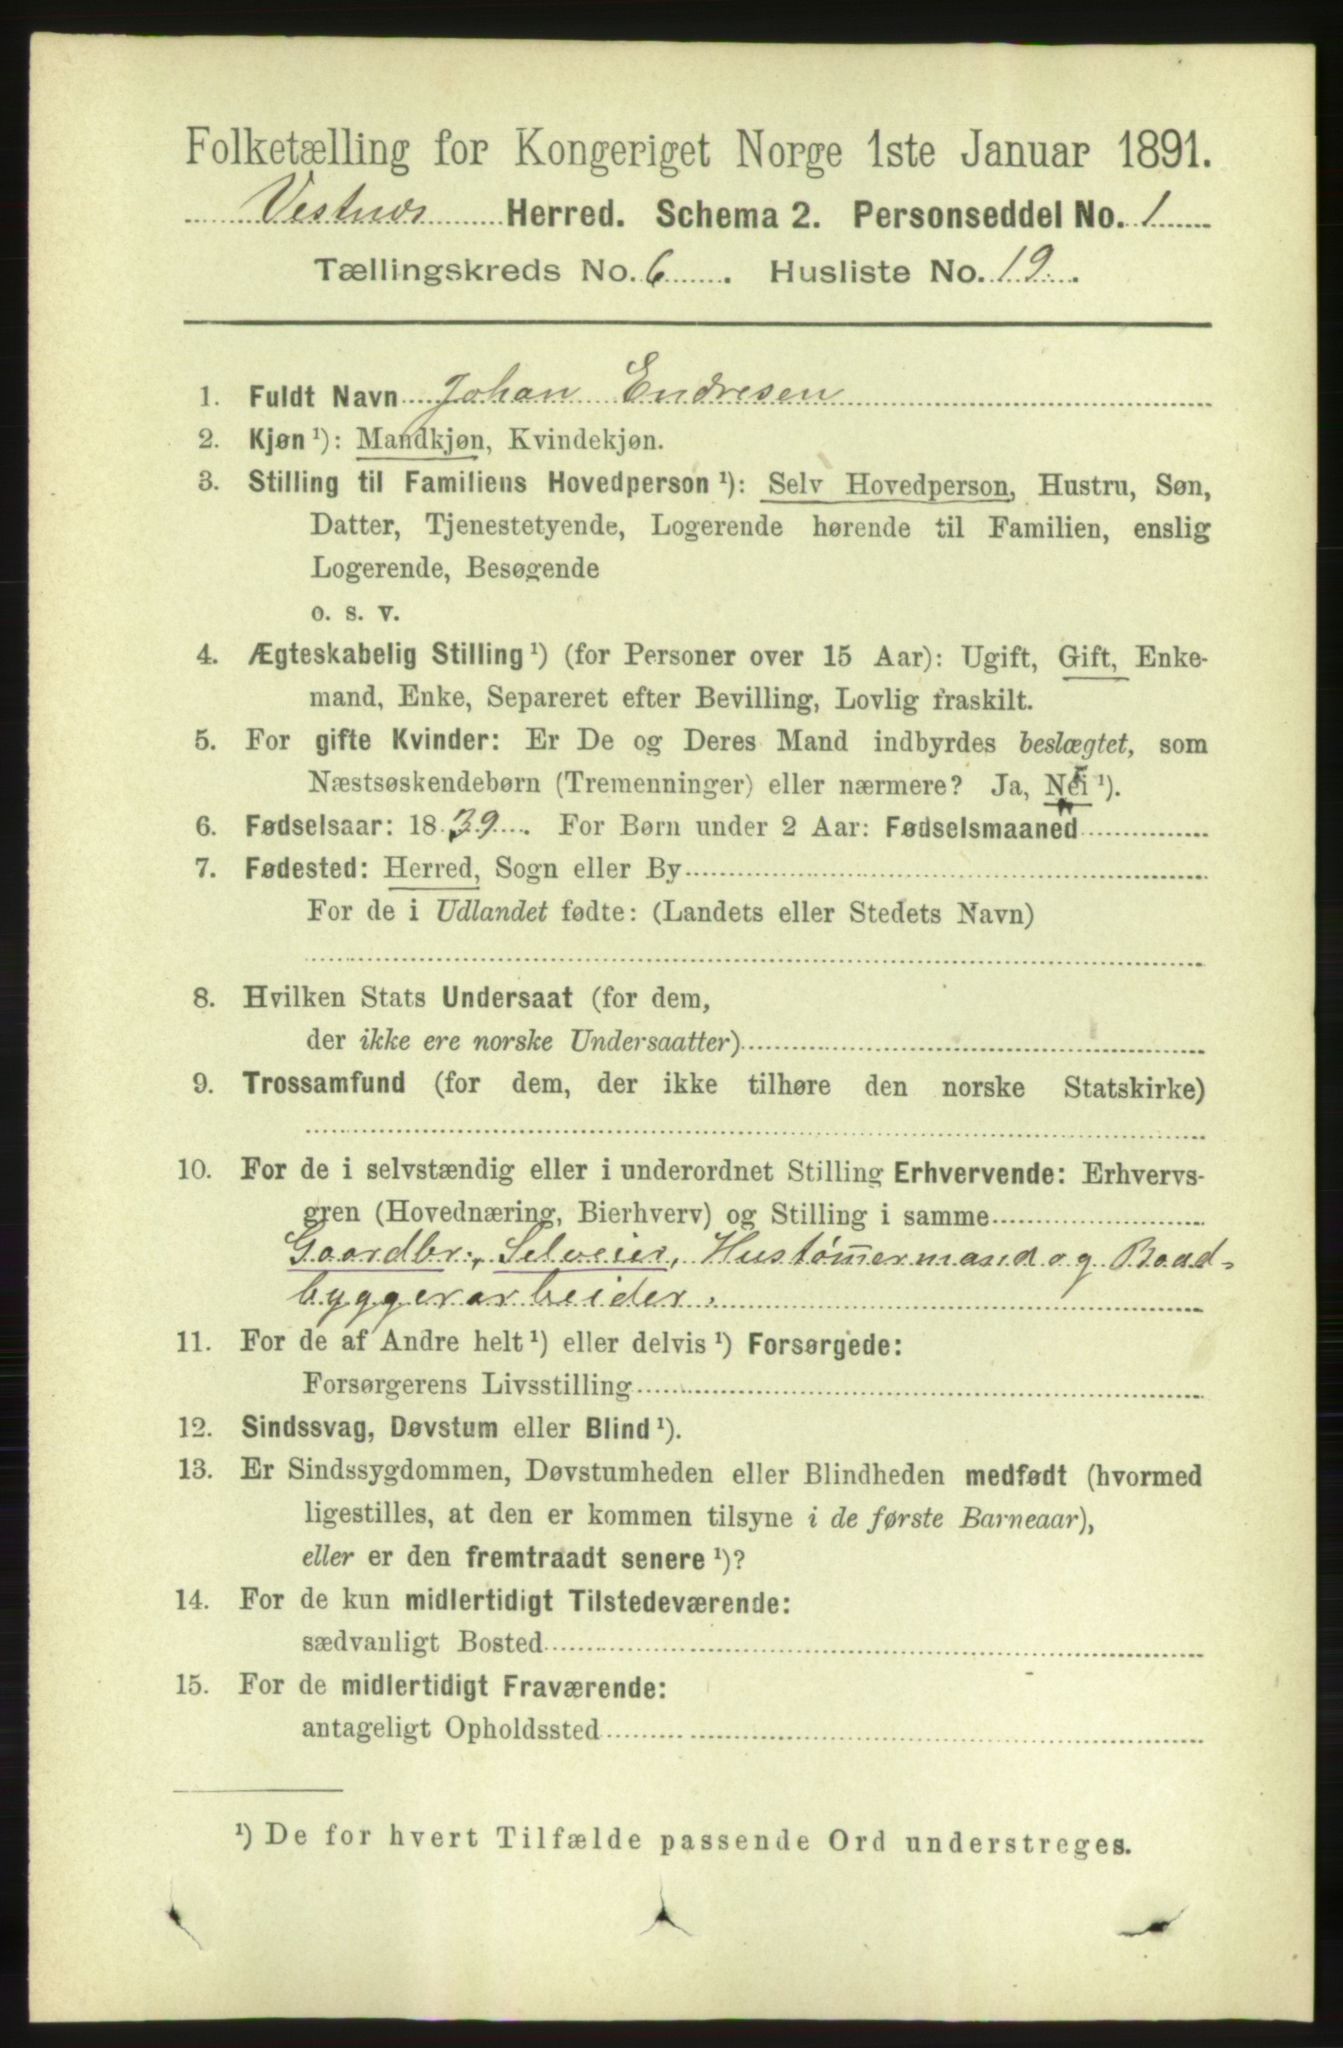 Folketælling for Kongeriget Norge 1ste Januar 1891.
Vestnes Herred. Schema 2. Personseddel No. 1
Tællingskreds No. 6. Husliste No. 19.
1. Fuldt Navn Johan Endresen
2. Kjøn ¹): Mandkjøn, Kvindekjøn.
3. Stilling til Familiens Hovedperson ¹): Selv Hovedperson, Hustru, Søn,
Datter, Tjenestetyende, Logerende hørende til Familien, enslig
Logerende, Besøgende
o. s. v.
4. Ægteskabelig Stilling ¹) (for Personer over 15 Aar): Ugift, Gift, Enke-
mand, Enke, Separeret efter Bevilling, Lovlig fraskilt.
5. For gifte Kvinder: Er De og Deres Mand indbyrdes beslægtet, som
Næstsøskendebørn (Tremenninger) eller nærmere? Ja, Nei ¹).
6. Fødselsaar: 1839. For Børn under 2 Aar: Fødselsmaaned
7. Fødested: Herred, Sogn eller By
For de i Udlandet fødte: (Landets eller Stedets Navn)
8. Hvilken Stats Undersaat (for dem,
der ikke ere norske Undersaatter)
9. Trossamfund (for dem, der ikke tilhøre den norske Statskirke)
10. For de i selvstændig eller i underordnet Stilling Erhvervende: Erhvervs-
gren (Hovednæring, Bierhverv) og Stilling i samme
Gaardbr., Selveier, Hustøm̅ermand og Baad-
byggerarbeider.
11. For de af Andre helt ¹) eller delvis ¹) Forsørgede:
Forsørgerens Livsstilling
12. Sindssvag, Døvstum eller Blind ¹).
13. Er Sindssygdommen, Døvstumheden eller Blindheden medfødt (hvormed
ligestilles, at den er kommen tilsyne i de første Barneaar),
eller er den fremtraadt senere ¹)?
14. For de kun midlertidigt Tilstedeværende:
sædvanligt Bosted
15. For de midlertidigt Fraværende:
antageligt Opholdssted
¹) De for hvert Tilfælde passende Ord understreges.